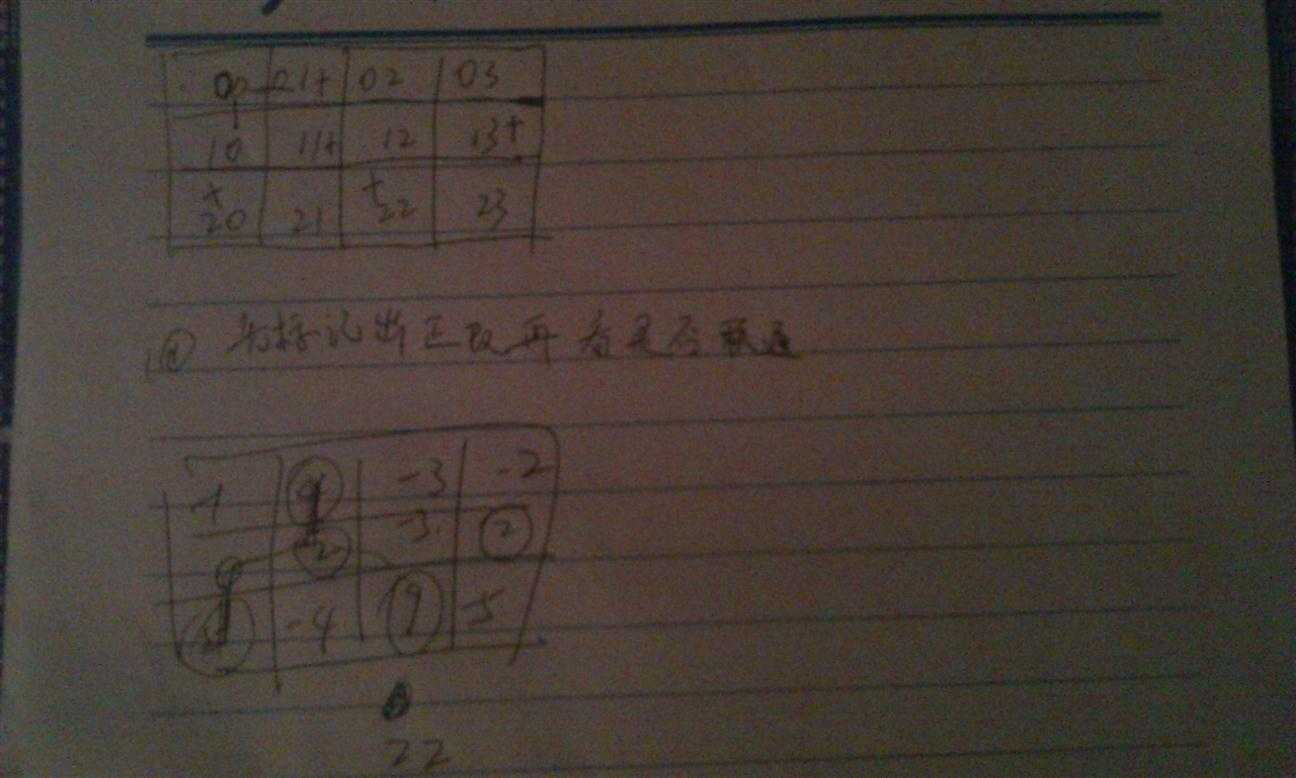 00 01+ 02 03
10 11+ 12 13+
+20 21 +22 23
① 先标记出正数再看是否联通
-1 -3 -2
2 -3 2
-4 9 -5
22